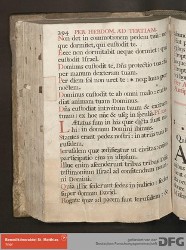 394 PER HEBDOM. AD TERTIAM.
Non det in commotionem pedem tuum: ne-
que dormitet, qui custodit te.
Ecce non dormitabit neque dormiet: qui
custodit Israel.
Dominus custodit te, Dñs protectio tua: su-
per manum dexteram tuam.
Per diem sol non uret te: neque luna per
noctem.
Dominus custodit te ab omni malo: custo-
diat animam tuam Dominus.
Dñs custodiat introitum tuum & exitum
tuum: ex hoc nũc & usq; in sęculũ.
Lætatus sum in his quæ dicta sunt mi-
hi: in domum Domini ibimus.
Stantes erant pedes nostri: in atriis tuis Je-
rusalem.
Jerusalem quæ ædificatur ut civitas: cuius
participatio eius in idipsum.
Illuc enim ascenderunt tribus tribus Dñi:
testimonium Israel ad confitendum nomi-
ni Domini.
Quia illic sederunt sedes in judicio: sedes
super domum David.
Rogate quæ ad pacem sunt Jerusalem: &
DFG